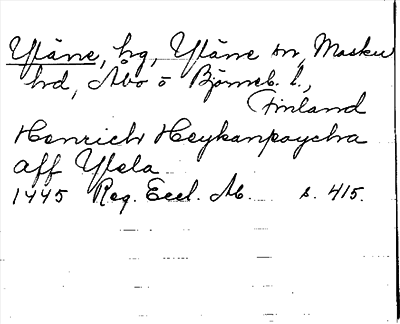 Yläne, by, Yläne sn, Masku
hd, Åbo o Björneb. l.,
Finland
Henrich Heykanpoycha
aff Ylela
1445 Reg. Eccl. Ab. s. 415.